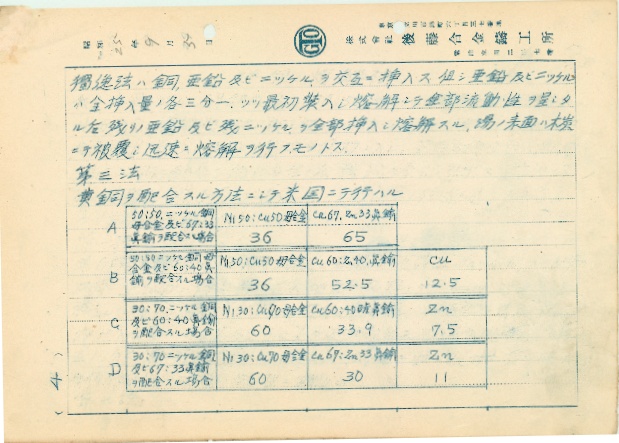 株式会社 後藤合金鋳工所
昭和 25年9月30日
獨逸法ハ銅、亜鉛及ビニッケルヲ交互ニ挿入ス但シ亜鉛及ビニッケル
ハ全挿入量ノ各三分一ヅツ最初装入シ熔解シテ全部流動性ヲ呈シタ
ル后残リノ亜鉛及ビ残ニッケルヲ全部挿入シ熔解スル、湯ノ表面ハ木炭
ニテ被覆シ迅速ニ熔解ヲ行フモノトス
第三法
黄銅ヲ配合スル方法ニシテ米国ニテ行ハル
A 50:50、ニッケル銅母合金及ビ67:33真鍮ヲ配合ノ場合 Ni50:Cu50母合金 Cu67、Zn33真鍮
36 65
B 50:50ニッケル銅母合金及ビ60:40真鍮ヲ配合スル場合 Ni50:Cu50母合金 Cu60:Zn40、真鍮 Cu
36 52.5 12.5
C 30:70、ニッケル銅及ビ60:40真鍮ヲ配合スル場合 Ni30:Cu70母合金 Cu60:40真鍮 Zn
60 33.9 7.5
D 30:70ニッケル銅及ビ67:33真鍮ヲ配合スル場合 Ni30:Cu70母合金 Cu67:Zn33真鍮 Zn
60 30 11
(4)